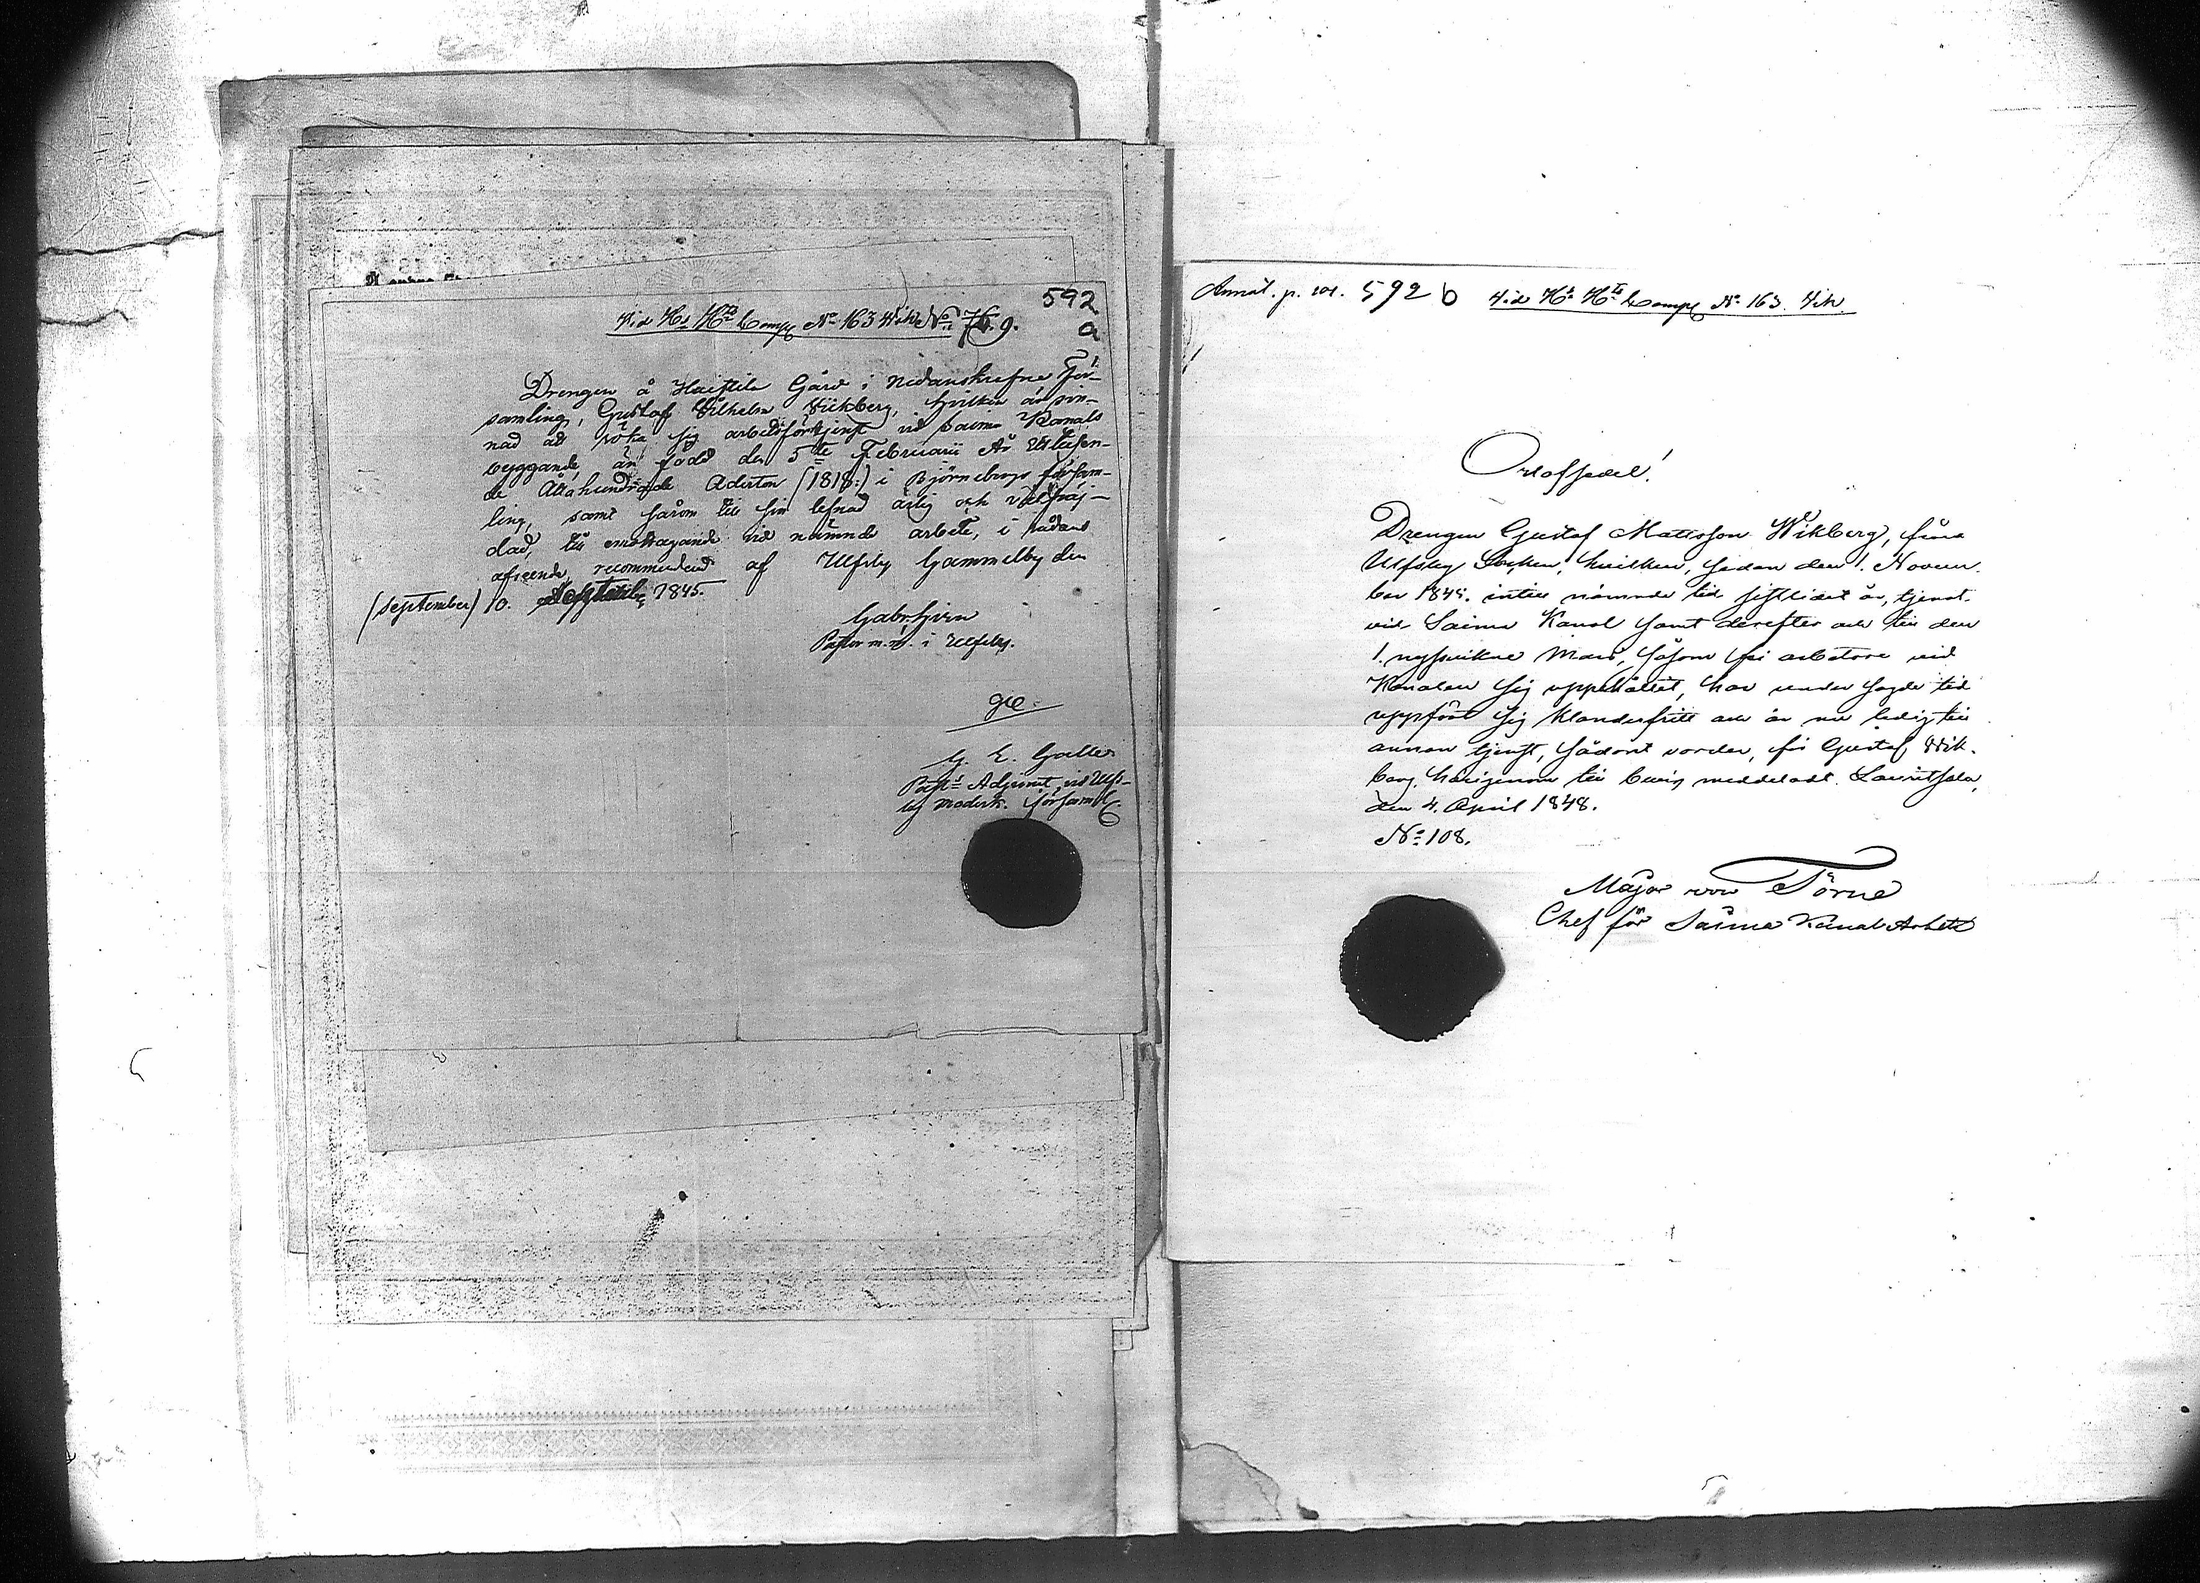 592
a
Vid Hs Hts Comp. No 163 Wik No 76. 9.
Drengen å Haistila Gård i nedanskrefne För-
samling, Gustaf Vilhelm Vickberg, hvilken är sin-
nad at söka sig arbetsförtjenst vid Saima Kanals
byggande, är född den 5te Februarii År Ettusen-
de Åttahundrade Aderton (1818:) i Björneborgs försam-
ling, samt såsom till sin lefnad ärlig och välfräj-
dad, till emottagande vid nämnde arbete, i sådant
afseende, recommenderad af Ulfsby Gammelby den
(September) 10. September 1845.
Gabr.
Pastor i Ulfsby.
G. E.
Past: Adjunct, vid Ulfs-
by moderk. församl.
592 b Vid Hs Hts Comp No 163. Wik.
Orlofssedel!
Drengen Gustaf Mattsson Wikberg, från
Ulfsby Socken, hvilken, sedan den 1. Novem-
ber 1845. intill nämnde tid sistlidet år, tjenat
vid Saima Kanal samt derefter och till den
1. nyssvikne Mars, såsom fri arbetare vid
Kanalen sig uppehållit, har under sagde tid
uppfört sig klanderfritt och är nu ledig till
annan tjenst, sådant varder, för Gustaf Wik-
berg, härigenom till bevis meddeladt. Lauritsala,
den 4. April 1848.
No 108.
Major von Törne
Chef för Saima Kanal Arbete